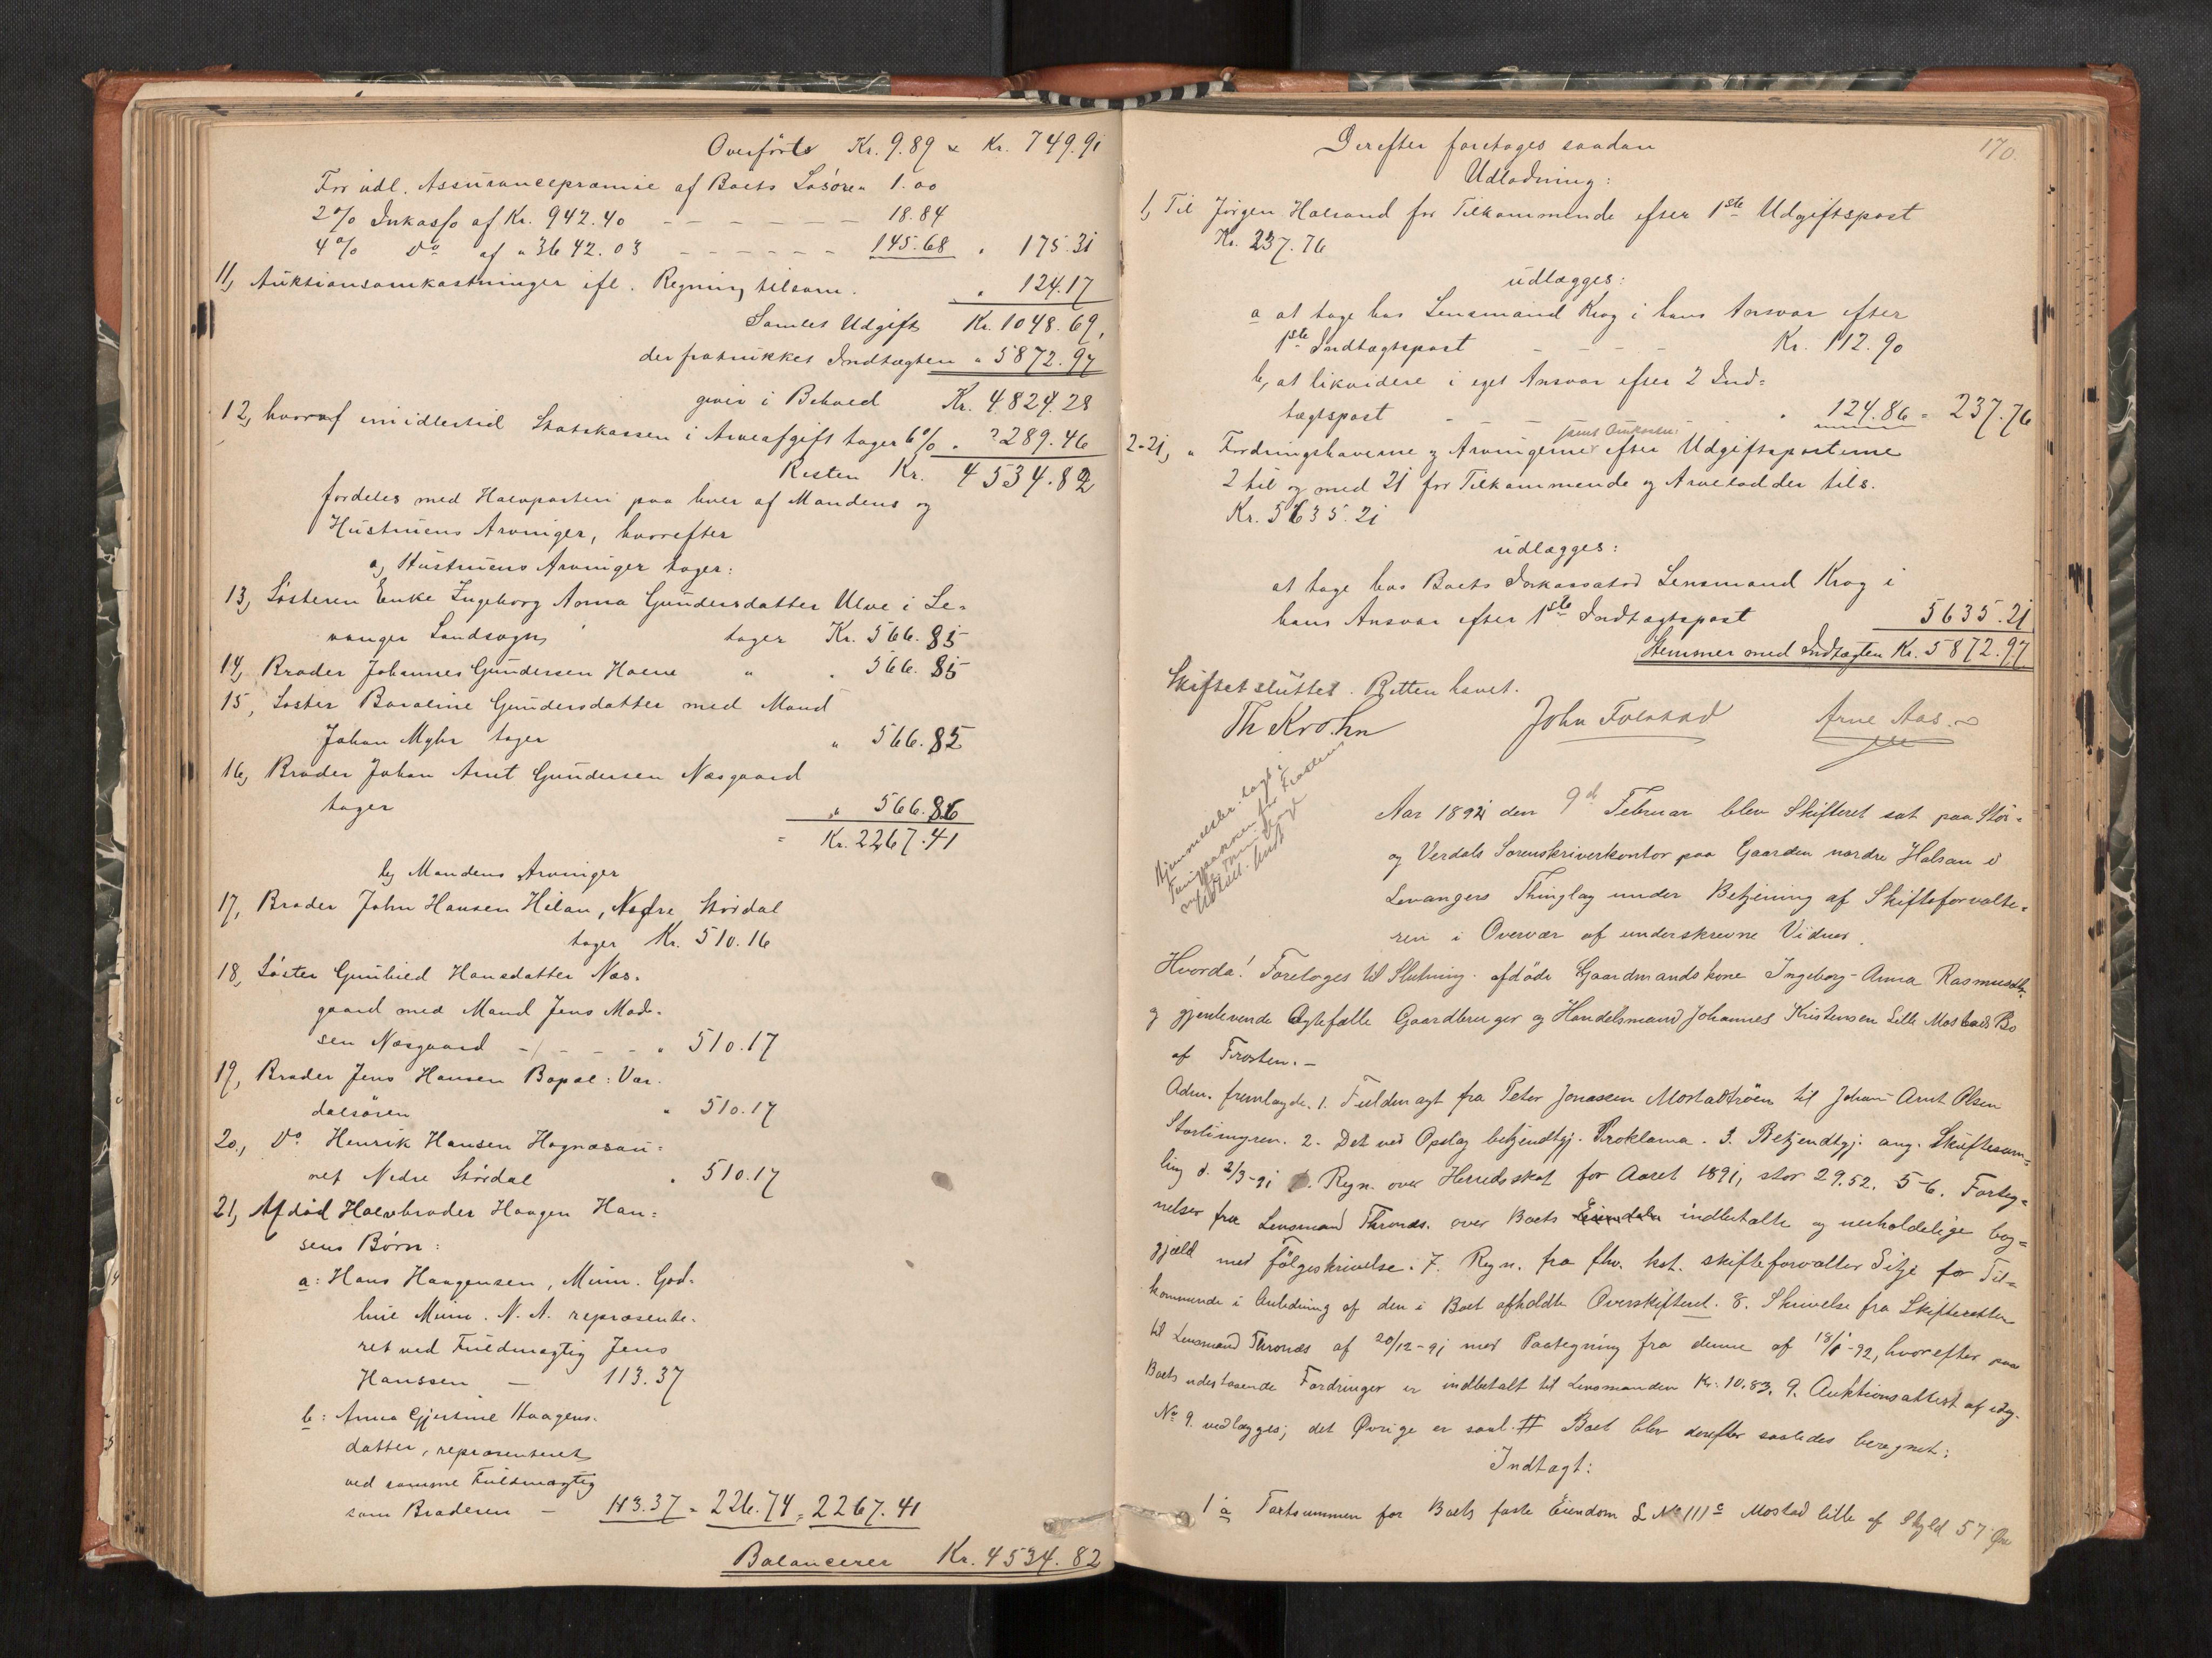 Overførte Kr. 9.89 Kr. 749.91
For udl. Assurancepræmie af Boets Løsøre " 1.00
2% Inkasso af Kr. 942.40 - - - - - - 18.84
4% Do af " 3642.03 - - - - - - 145.68 " 175.31
11, Auktionsomkostninger ifl. Regning tilsam. " 124.17
Samlet Udgift Kr. 1048.69,
der fratrukket Indtægten " 5872.97
giver i Behold Kr. 4824.28
12, hvoraf imidlertid Statskassen i Arveafgift tager 6% " 289.46
Resten Kr. 4534.82
fordeles med Halvparten paa hver af Mandens og
Hustruens Arvinger, hvorefter
a, Hustruens Arvinger tager:
13, Søsteren Enke Ingeborg Anna Gundersdatter Ulve i Le=
vanger Landsogn, tager Kr. 566.85
14, Broder Johannes Gundersen Hoene " " 566.85
15, Søster Baroline Gundersdatter med Mand
Johan Myhr tager " 566.85
16, Broder Johan Arnt Gundersen Næsgaard
tager " 566.86
= Kr. 2267.41
b, Mandens Arvinger
17, Broder John Hansen Hilan, Nedre Størdal
tager Kr. 510.16
18, Søster Gunhild Hansdatter Næs=
gaard med Mand Jens Mad=
sen Næsgaard - - - - " 510.17
19, Broder Jens Hansen Bopæl: Vær=
dalsøren " 510.17
20, Do Henrik Hansen Hognæsau=
net Nedre Stördal " 510.17
21, Afdød Halvbroder Haagen Han=
sens Børn:
a: Hans Haagensen, Minn. God=
hue Minn. N. A. repræsente=
ret ved Fuldmægtig Jens
Hanssen — 113.37
b: Anna Gjertine Haagens=
datter, repræsenteret
ved samme Fuldmægtig
som Broderen — 113.37 = 226.74 = 2267.41
Balancerer Kr. 4534.82
170.
Derefter foretoges saadan
Udlodning:
1, Til Jørgen Halsand for Tilkommende efter 1ste Udgiftspost
Kr. 237.76
udlægges:
a at tage hos Lensmand Krog i hans Ansvar efter
1ste Indtægtspost - - - - Kr. 112.90
b, at likvidere i eget Ansvar efter 2 Ind=
tægtspost - - - - " 124.86 = 237.76
samt Omkostn.
2-21, " Fordringshaverne og Arvingerne efter Udgiftsposterne
2 til og med 21 for Tilkommende og Arvelodder tils.
Kr. 5635.21
udlægges:
at tage hos Boets Inkassator Lensmand Krog i
hans Ansvar efter 1ste Indtægtspost 5635.21
Stemmer med Indtægten Kr. 5872.97
Skiftet sluttet. Retten hævet.
Th Krohn John Folstad Arne Aas.
Aar 1892 den 9de Februar blev Skifteret sat paa Stør=
og Verdals Sorenskriverkontor paa Gaarden nordre Halsan i
Levangers Thinglag under Betjening af Skifteforvalte=
ren i Overvær af underskrevne Vidner.
Hvorda! Foretoges til Slutning afdøde Gaardmandskone Ingeborg-Anna Rasmusdtr.
og gjenlevende Ægtefælle Gaardbruger og Handelsmand Johannes Kristensen Lille Mostads Bo
af Frosten.—
Adm. fremlagde. 1. Fuldmagt fra Peter Jonassen Mostadtrøen til Johan Arnt Olsen
Stortimyren. 2. Det ved Opslag bekjendtgj. Proklama. 3. Bekjendtgj. ang. Skiftesam=
ling d. 2/3-91 Regn. over Herredsskat for Aaret 1891, stor 29.52. 5-6. Forteg=
nelser fra Lensmand Thronæs. over Boets Eiendele indbetalte og uerholdelige bog=
gjæld med Følgeskrivelse. 7. Regn. fra fhv. kst. skifteforvalter Sitje for Til=
kommende i Anledning af den i Boet afholdte Overskifteret. 8. Skrivelse fra Skifteretten
til Lensmand Thronæs af 20/12-91 med Paategning fra denne af 18/1-92, hvorefter paa
Boets udestaaende Fordringer er indbetalt til Lensmanden Kr. 10.83. 9. Auktionsattest af
No 9. vedlægges; det Øvrige er saal. # Boet blev derefter saaledes beregnet:
Indtægt:
1 a Takstsummen for Boets faste Eiendom L No 111c Mostad lille af Skyld 57 Øre